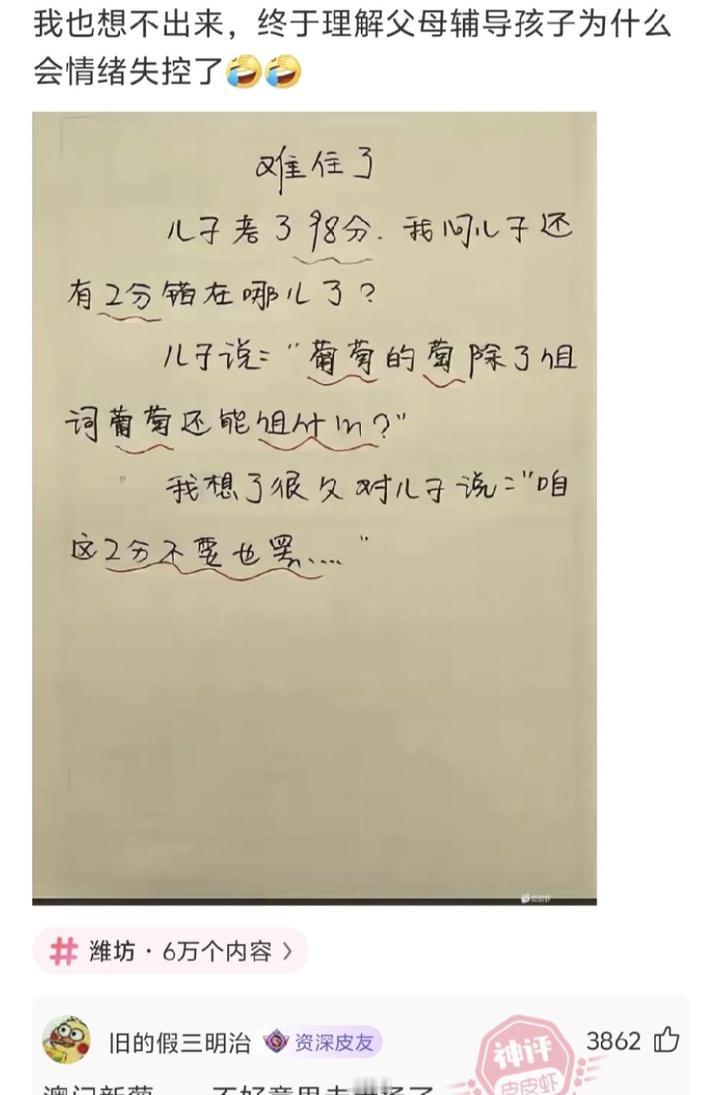 我也想不出来，终于理解父母辅导孩子为什么
会情绪失控了🤣🤣
难住了
儿子考了98分．我问儿子还
有2分错在哪儿了？
儿子说："葡萄的萄除了组
词葡萄还能组什么？"
我想了很久对儿子说："咱
这2分不要也罢....."
# 潍坊·6万个内容 〉
旧的假三明治 资深皮友 神评 3862
皮皮虾
澳门新葡……不好意思走错场了